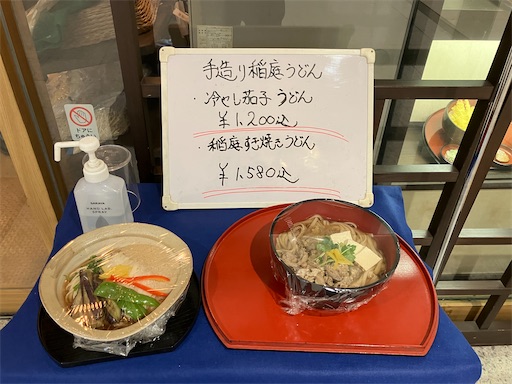 手造り稲庭うどん
・冷やし茄子うどん
¥1,200込
・稲庭すき焼きうどん
¥1,580込